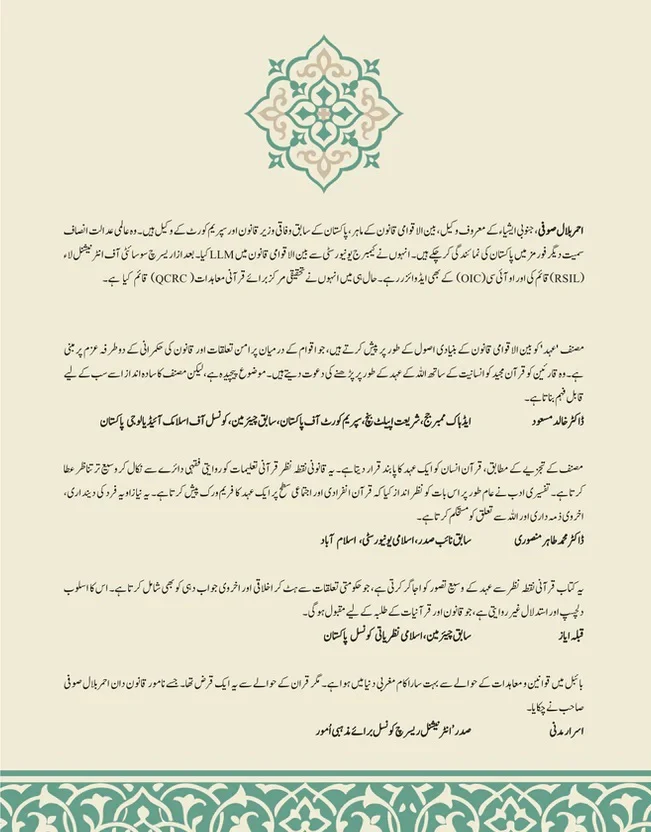 احمر بلال صوفی، جنوبی ایشیاء کے معروف وکیل، بین الاقوامی قانون کے ماہر، پاکستان کے سابق وفاقی وزیر قانون اور سپریم کورٹ کے وکیل ہیں۔ وہ عالمی عدالت انصاف
سمیت دیگر فورمز میں پاکستان کی نمائندگی کر چکے ہیں۔ انہوں نے کیمبرج یونیورسٹی سے بین الاقوامی قانون میں LLM کیا۔ بعد ازاں ریسرچ سوسائٹی آف انٹرنیشنل لاء
(RSIL) قائم کی اور او آئی سی (OIC) کے بھی ایڈوائزر رہے۔ حال ہی میں انہوں نے تحقیقی مرکز برائے قرآنی معاہدات (QCRC) قائم کیا ہے۔
مصنف 'عہد' کو بین الاقوامی قانون کے بنیادی اصول کے طور پر پیش کرتے ہیں، جو اقوام کے درمیان پرامن تعلقات اور قانون کی حکمرانی کے دو طرفہ عزم پر مبنی
ہے۔ وہ قارئین کو قرآن مجید کو انسانیت کے ساتھ اللہ کے عہد کے طور پر پڑھنے کی دعوت دیتے ہیں۔ موضوع پیچیدہ ہے، لیکن مصنف کا سادہ انداز اسے سب کے لیے
قابل فہم بناتا ہے۔
ڈاکٹر خالد مسعود ایڈہاک ممبر جج، شریعت اپیلٹ بنچ، سپریم کورٹ آف پاکستان، سابق چیئرمین، کونسل آف اسلامک آئیڈیالوجی پاکستان
مصنف کے تجزیے کے مطابق، قرآن انسان کو ایک عہد کا پابند قرار دیتا ہے۔ یہ قانونی نقطہ نظر قرآنی تعلیمات کو روایتی فقہی دائرے سے نکال کر وسیع تر تناظر عطا
کرتا ہے۔ تفسیری ادب نے عام طور پر اس بات کو نظر انداز کیا کہ قرآن انفرادی اور اجتماعی سطح پر ایک عہد کا فریم ورک پیش کرتا ہے۔ یہ نیا زاویہ فرد کی دینداری،
اخروی ذمہ داری اور اللہ سے تعلق کو مستحکم کرتا ہے۔
ڈاکٹر محمد طاہر منصوری سابق نائب صدر، اسلامی یونیورسٹی، اسلام آباد
یہ کتاب قرآنی نقطہ نظر سے عہد کے وسیع تصور کو اجاگر کرتی ہے، جو حکومتی تعلقات سے ہٹ کر اخلاقی اور اخروی جواب دہی کو بھی شامل کرتا ہے۔ اس کا اسلوب
دلچسپ اور استدلال غیر روایتی ہے، جو قانون اور قرآنیات کے طلبہ کے لیے مقبول ہوگی۔
قبلہ ایاز سابق چیئرمین، اسلامی نظریاتی کونسل پاکستان
بائبل میں قوانین و معاہدات کے حوالے سے بہت سارا کام مغربی دنیا میں ہوا ہے۔ مگر قرآن کے حوالے سے یہ ایک قرض تھا۔ جسے نامور قانون دان احمر بلال صوفی
صاحب نے چکایا۔
اسرار مدنی صدر 'انٹرنیشنل ریسرچ کونسل برائے مذہبی اُمور